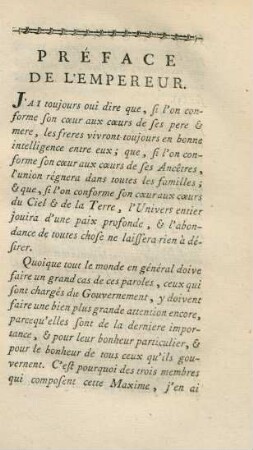 PRÉFACE
DE L'EMPEREUR.
J'AI toujours oui dire que, si l'on con-
forme son cœur aux cœurs de ses pere &
mere, les freres vivront toujours en bonne
intelligence entre eux; que, si l'on con-
forme son cœur aux cœurs de ses Ancêtres,
l'union régnera dans toutes les familles;
& que, si l'on conforme son cœur aux cœurs
du Ciel & de la Terre, l'Univers entier
jouira d'une paix profonde, & l'abon-
dance de toutes chose ne laissera rien à dé-
sirer.
Quoique tout le monde en général doive
faire un grand cas de ces paroles, ceux qui
sont chargés du Gouvernement, y doivent
faire une bien plus grande attention encore,
parcequ'elles sont de la derniere impor-
tance, & pour leur bonheur particulier, &
pour le bonheur de tous ceux qu'ils gou-
vernent. C'est pourquoi des trois membres
qui composent cette Maxime, j'en ai